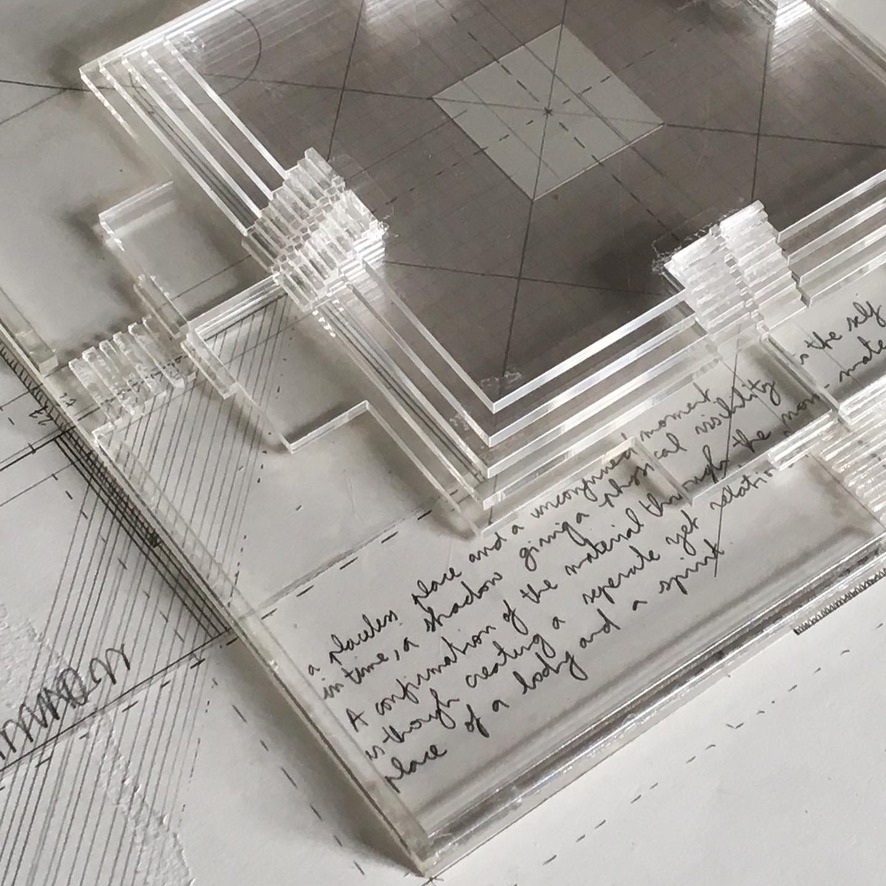 a placeless place and a unconfined moment
in time, a shadow giving a physical visibility is the self
A confirmation of the material through the non-mate
is though creating a seperate yet relatio
place of a body and a spirit
23